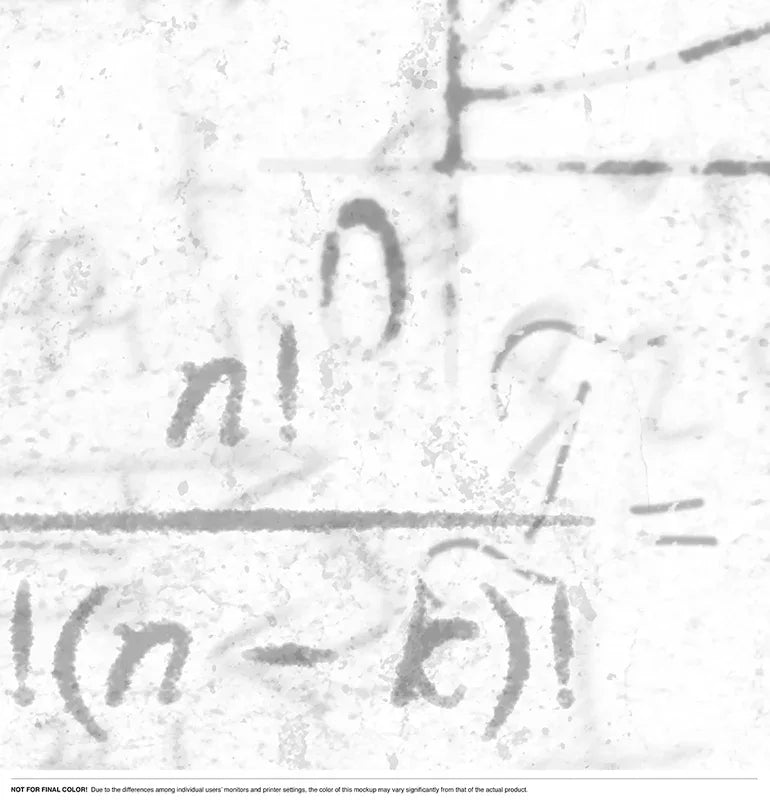 n!
!(n - k)!
=
NOT FOR FINAL COLOR! Due to the differences among individual users' monitors and printer settings, the color of this mockup may vary significantly from that of the actual product.